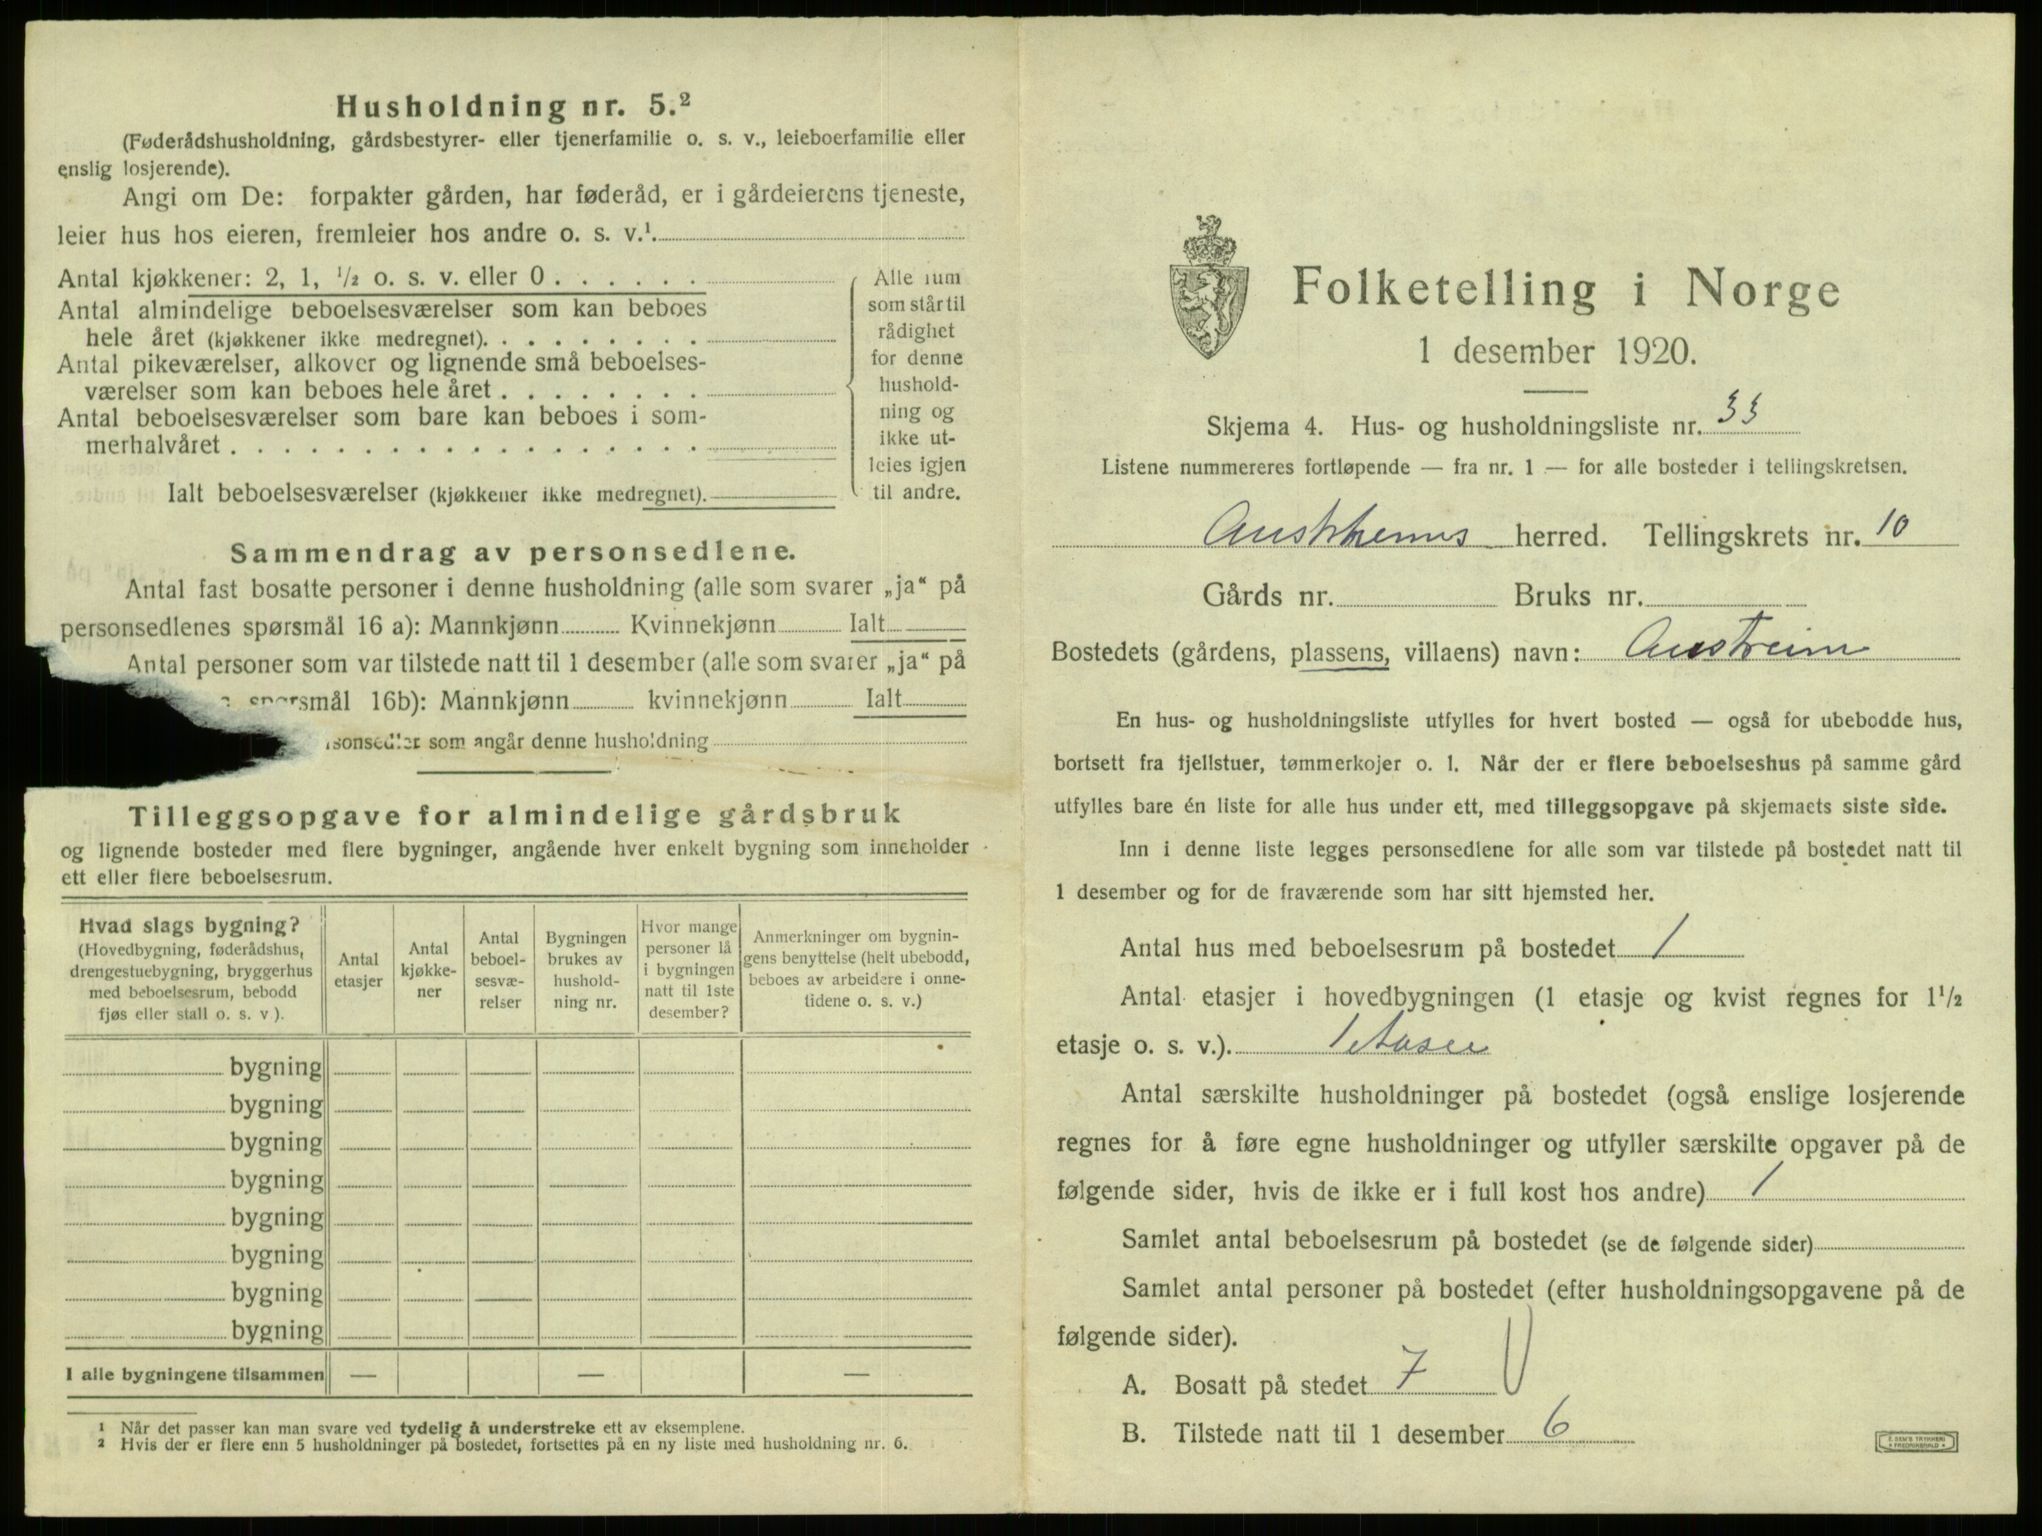 Husholdning nr. 5.²
(Føderådshusholdning, gårdsbestyrer- eller tjenerfamilie o. s. v., leieboerfamilie eller
enslig losjerende).
Angi om De: forpakter gården, har føderåd, er i gårdeierens tjeneste,
leier hus hos eieren, fremleier hos andre o. s. v.¹.
Antal kjøkkener: 2, 1, ½ o. s. v. eller 0
Antal almindelige beboelsesværelser som kan beboes
hele året (kjøkkener ikke medregnet).
Antal pikeværelser, alkover og lignende små beboelses-
værelser som kan beboes hele året
Antal beboelsesværelser som bare kan beboes i som-
merhalvåret
Ialt beboelsesværelser (kjøkkener ikke medregnet).
Alle rum
som står til
rådighet
for denne
hushold-
ning og
ikke ut-
leies igjen
til andre.
Sammendrag av personsedlene.
Antal fast bosatte personer i denne husholdning (alle som svarer „ja“ på
personsedlenes spørsmål 16 a): Mannkjønn Kvinnekjønn Ialt
Antal personer som var tilstede natt til 1 desember (alle som svarer „ja“ på
spørsmål 16b): Mannkjønn kvinnekjønn Ialt
rsonsedler som angår denne husholdning
Tilleggsopgave for almindelige gårdsbruk
og lignende bosteder med flere bygninger, angående hver enkelt bygning som inneholder
ett eller flere beboelsesrum.
Hvad slags bygning?
(Hovedbygning, føderådshus,
drengestuebygning, bryggerhus
med beboelsesrum, bebodd
fjøs eller stall o. s. v ).
Antal
etasjer
Antal
kjøkke-
ner
Antal
beboel-
sesvæ-
relser
Bygningen
brukes av
hushold-
ning nr.
Hvor mange
personer lå
i bygningen
natt til 1ste
desember?
Anmerkninger om bygnin-
gens benyttelse (helt ubebodd,
beboes av arbeidere i onne-
tidene o. s. v.)
bygning
bygning
bygning
bygning
bygning
bygning
bygning
bygning
I alle bygningene tilsammen — — —
¹ Når det passer kan man svare ved tydelig å understreke ett av eksemplene.
² Hvis der er flere enn 5 husholdninger på bostedet, fortsettes på en ny liste med husholdning nr. 6.
Folketelling i Norge
1 desember 1920.
Skjema 4. Hus- og husholdningsliste nr. 33
Listene nummereres fortløpende — fra nr. 1 — for alle bosteder i tellingskretsen.
herred. Tellingskrets nr. 10
Gårds nr. Bruks nr.
Bostedets (gårdens, plassens, villaens) navn: Austreim
En hus- og husholdningsliste utfylles for hvert bosted — også for ubebodde hus,
bortsett fra fjellstuer, tømmerkojer o. l. Når der er flere beboelseshus på samme gård
utfylles bare én liste for alle hus under ett, med tilleggsopgave på skjemaets siste side.
Inn i denne liste legges personsedlene for alle som var tilstede på bostedet natt til
1 desember og for de fraværende som har sitt hjemsted her.
Antal hus med beboelsesrum på bostedet 1
Antal etasjer i hovedbygningen (1 etasje og kvist regnes for 1½
etasje o. s. v.). 1
Antal særskilte husholdninger på bostedet (også enslige losjerende
regnes for å føre egne husholdninger og utfyller særskilte opgaver på de
følgende sider, hvis de ikke er i full kost hos andre) 1
Samlet antal beboelsesrum på bostedet (se de følgende sider)
Samlet antal personer på bostedet (efter husholdningsopgavene på de
følgende sider).
A. Bosatt på stedet 7
B. Tilstede natt til 1 desember 6